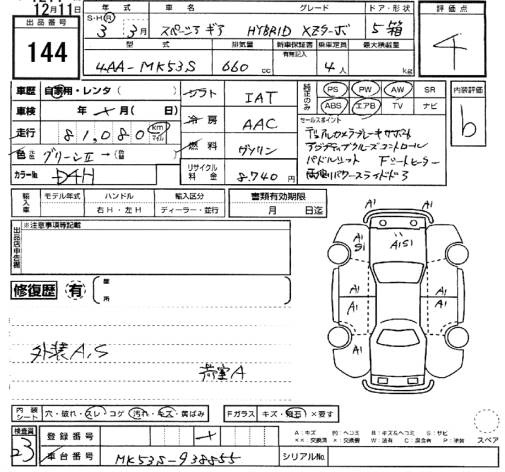 12月11日
出品番号
144
年式 車名 グレード ドア・形状
S・H・R 3年 3月 スペーシア ギア HYBRID XZターボ 5 箱
型式 排気量 新車保証書 有無記入 乗車定員 最大積載量
4AA-MK53S 660 cc 4人 kg
評価点
4
車歴 自家用・レンタ( )
車検 年 月( 日)
走行 81,080 km マイル
色 元色 グリーンII →(色替 )
カラーNo. D4H
シフト IAT
冷房 AAC
燃料 ガソリン
リサイクル料金 8,740円
純正のみ PS PW AW SR
ABS エアB TV ナビ
セールスポイント
デュアルカメラブレーキサポート
アダプティブクルーズコントロール
パドルシフト Fシートヒーター
両側パワースライドドア
内装評価
b
輸入車 モデル年式 ハンドル 輸入区分
年 右H・左H ディーラー・並行
書類有効期限
月 日迄
出品店申告書
※注意事項等記載
修復歴 有 箇所
外装A,S
荷室A
A1
A1
A1 S1
A1S1
A1
A1
A1
A1
A1
内装シート 穴・破れ・スレ・コゲ 汚れ・キズ・黄ばみ
Fガラス キズ・飛石・×要す
スペア
検査員
23
登録番号
車台番号 MK53S-938555
シリアルNo.
A:キズ B:キズ&ヘコミ S:サビ
XX:交換済 X:交換要 W:波有 C:腐食有 P:塗装